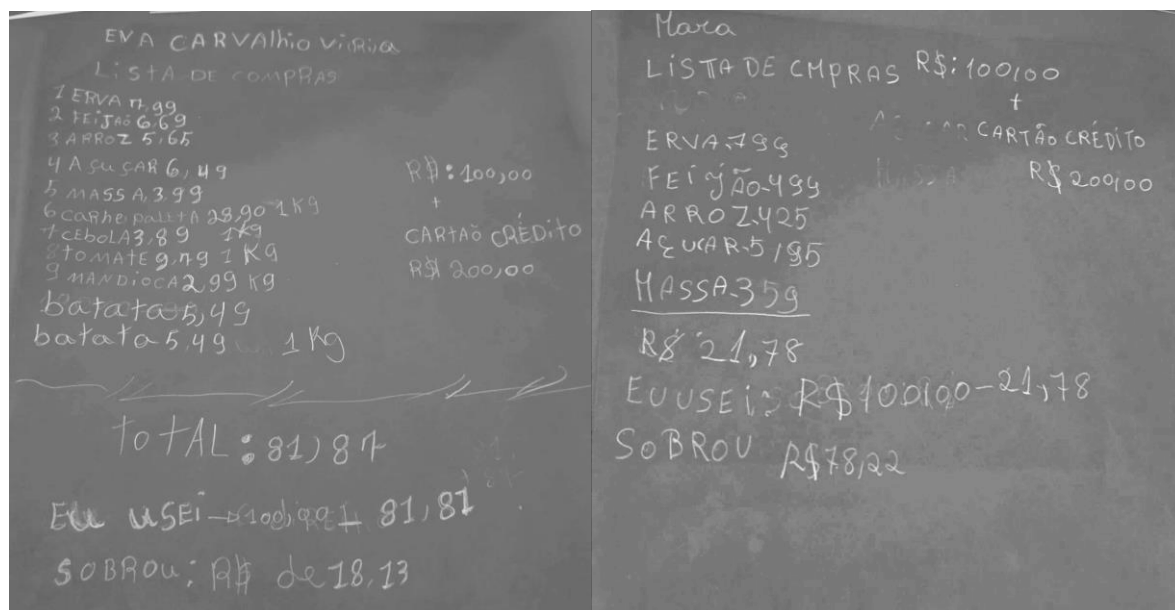 EVA CARVAlhio ViiRiua
LiStA DE COMPRAS
1 ERVA 17,99
2 FEiJAO 6,69
3 ARROZ 5,65
4 ASUSAR 6,49
5 MASSA,3,99
6 CARHe paletA 28,90 1 Kg
7 CEBOLA 3,89 1 Kg
8 TOMATE 9,79 1 KG
9 MANDIOCA 2,99 KG
batata 5,49
batata 5,49 1 Kg
R$: 100,00
+
CARTAO CRÉDITO
R$ 200,00
TOTAL: 81,87
Eu USEi 81,81
SOBROU: R$ de 18,13
Mara
LISTA DE CMPRAS R$: 100,00
+
CARTÃO CRÉDITO
R$ 200,00
ERVA-799
FEIJÃO-499
ARROZ-425
AÇUCAR-5,95
MASSA-359
R$ 21,78
EU USEI: R$ 100,00 - 21,78
SOBROU R$ 78,22